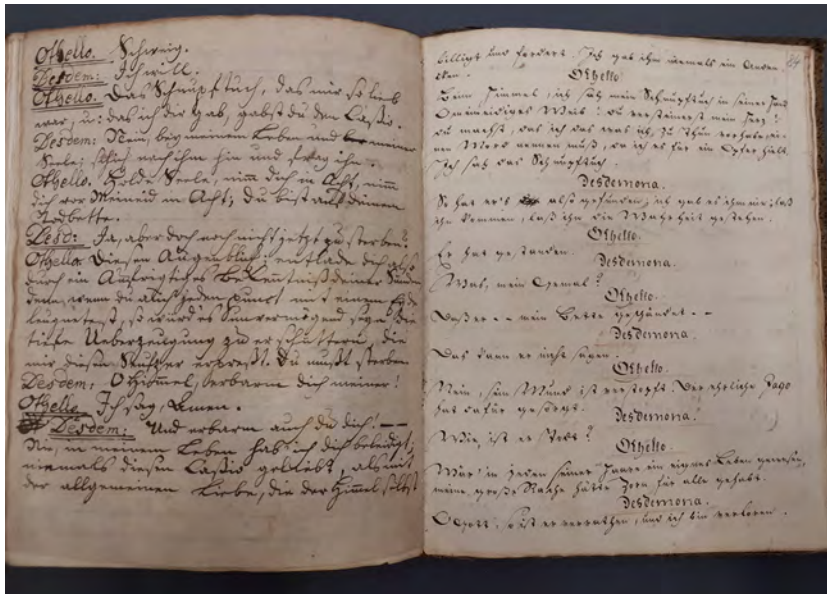 Othello. Schweig.
Desdem: Ich will.
Othello. Das Schnupftuch, das mir so lieb
war, u: das ich dir gab, gabst du dem Cassio.
Desdem: Nein, bey meinem Leben und meiner
Seele; schick nach ihm hin und frag ihn.
Othello. Holde Seele, nimm dich in Acht, nimm
dich vor Meineid in Acht; du bist auf deinem
Todbette.
Desd: Ja, aber doch noch nicht jetzt zu sterben?
Othello. Diesen Augenblick; entlade dich also
durch ein Aufrigtiches Bekenntniß deiner Sünden
denn, wenn du auch jeden punct mit einem Eyde
leugnetest, so würd es unvermögend seyn die
tiefe Ueberzeugung zu erschüttern, die
mir diesen Seufzer erpreßt. Du mußt sterben
Desdem: O Himmel, erbarm dich meiner!
Othello Ich sag, Amen.
Desdem: Und erbarm auch du dich! — —
Nie, in meinem Leben hab ich dich beleidigt;
niemals diesen Cassio geliebt, als mit
der allgemeinen Liebe, die der Himmel selbst
84
billigt und fordert. Ich gab ihm niemals ein Anden
cken.
Othello
Beim Himmel, ich sah mein Schnupftuch in seiner Hand
Meineidiges Weib! du versteinerst mein Herz!
du machst, das ich das was ich zu thun vorhabe, ei-
nen Mord nennen muß, da ich es für ein Opfer hielt.
Ich sah das Schnupftuch.
Desdemona.
So hat er's also gefunden; ich gab es ihm nie; laß
ihn kommen, laß ihn die Wahrheit gestehen.
Othello.
Er hat gestanden.
Desdemona.
Was, mein Gemal?
Othello.
Daß er - - mein Bette geschändet - -
Desdemona.
Das kann er nicht sagen.
Othello.
Nein, sein Mund ist verstopft. Der ehrliche Jago
hat dafür gesorgt.
Desdemona.
Wie, ist er Todt?
Othello.
Wär' in jeden seiner Haare ein eignes Leben gewesen,
meine große Rache hätte Zorn für alle gehabt.
Desdemona.
O Gott, so ist er verrathen, und ich bin verloren.